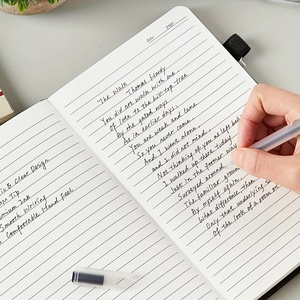 The Walk
Thomas Hardy
You did not walk with me
Of late to the hill-top tree
By the gated ways,
As in earlier days;
You were weak and lame,
So you never came,
And I went alone, and I did not mind,
Not thinking of you as left behind
I walked up there today
Just in the former way;
Surveyed around
The familiar ground
By myself again
What difference, then
Only that underlying
Of the look of a room on
& Clear Design
Tip
Ink
Smooth Writing
Comfortable Hand Feel